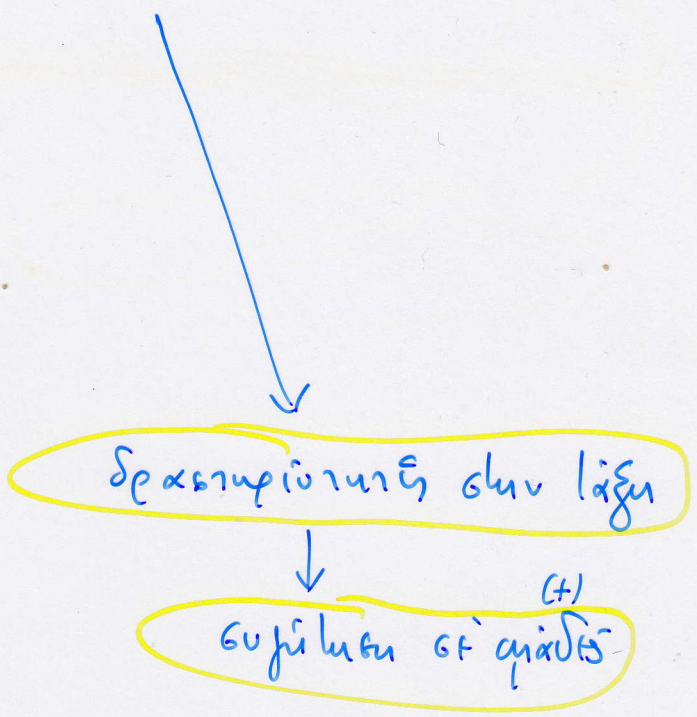 δραστηριότητες στην τάξη
(+)
συζήτηση σε ομάδες